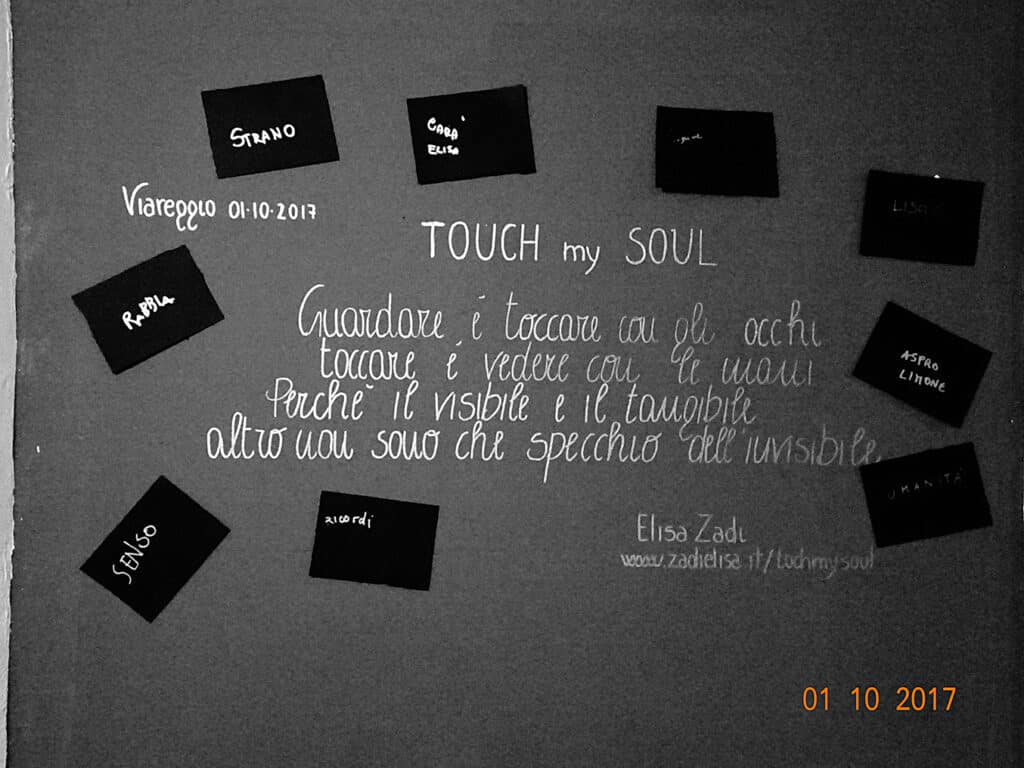 STRANO
CARA'
ELISA
Viareggio 01·10·2017
TOUCH my SOUL
RABBIA
Guardare é toccare con gli occhi
toccare é vedere con le mani
Perchè il visibile e il tangibile
altro non sono che specchio dell'invisibile
ASPRO
LIMONE
UMANITÁ
SENSO
ricordi
Elisa Zadi
www.zadielisa.it/tuchmysoul
01 10 2017